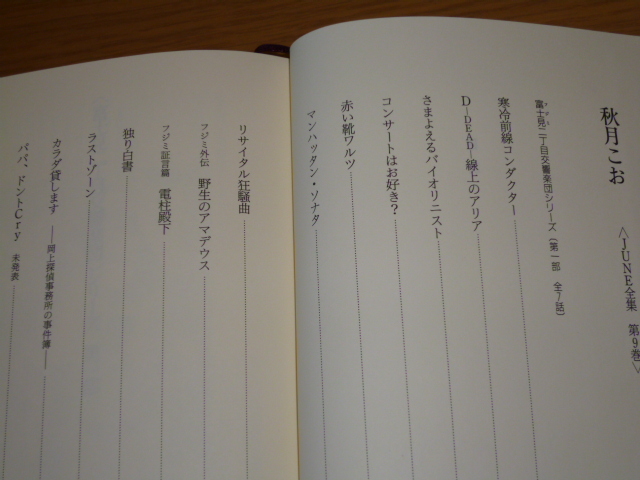 秋月こお
〈JUNE全集 第9巻〉
富士見二丁目交響楽団シリーズ(第一部 全7話)
寒冷前線コンダクター
D—DEAD—線上のアリア
さまよえるバイオリニスト
コンサートはお好き?
赤い靴ワルツ
マンハッタン・ソナタ
リサイタル狂騒曲
フジミ外伝 野生のアマデウス
フジミ証言篇 電柱殿下
独り白書
ラストゾーン
カラダ貸します ——岡上探偵事務所の事件簿——
パパ、ドントCry 未発表